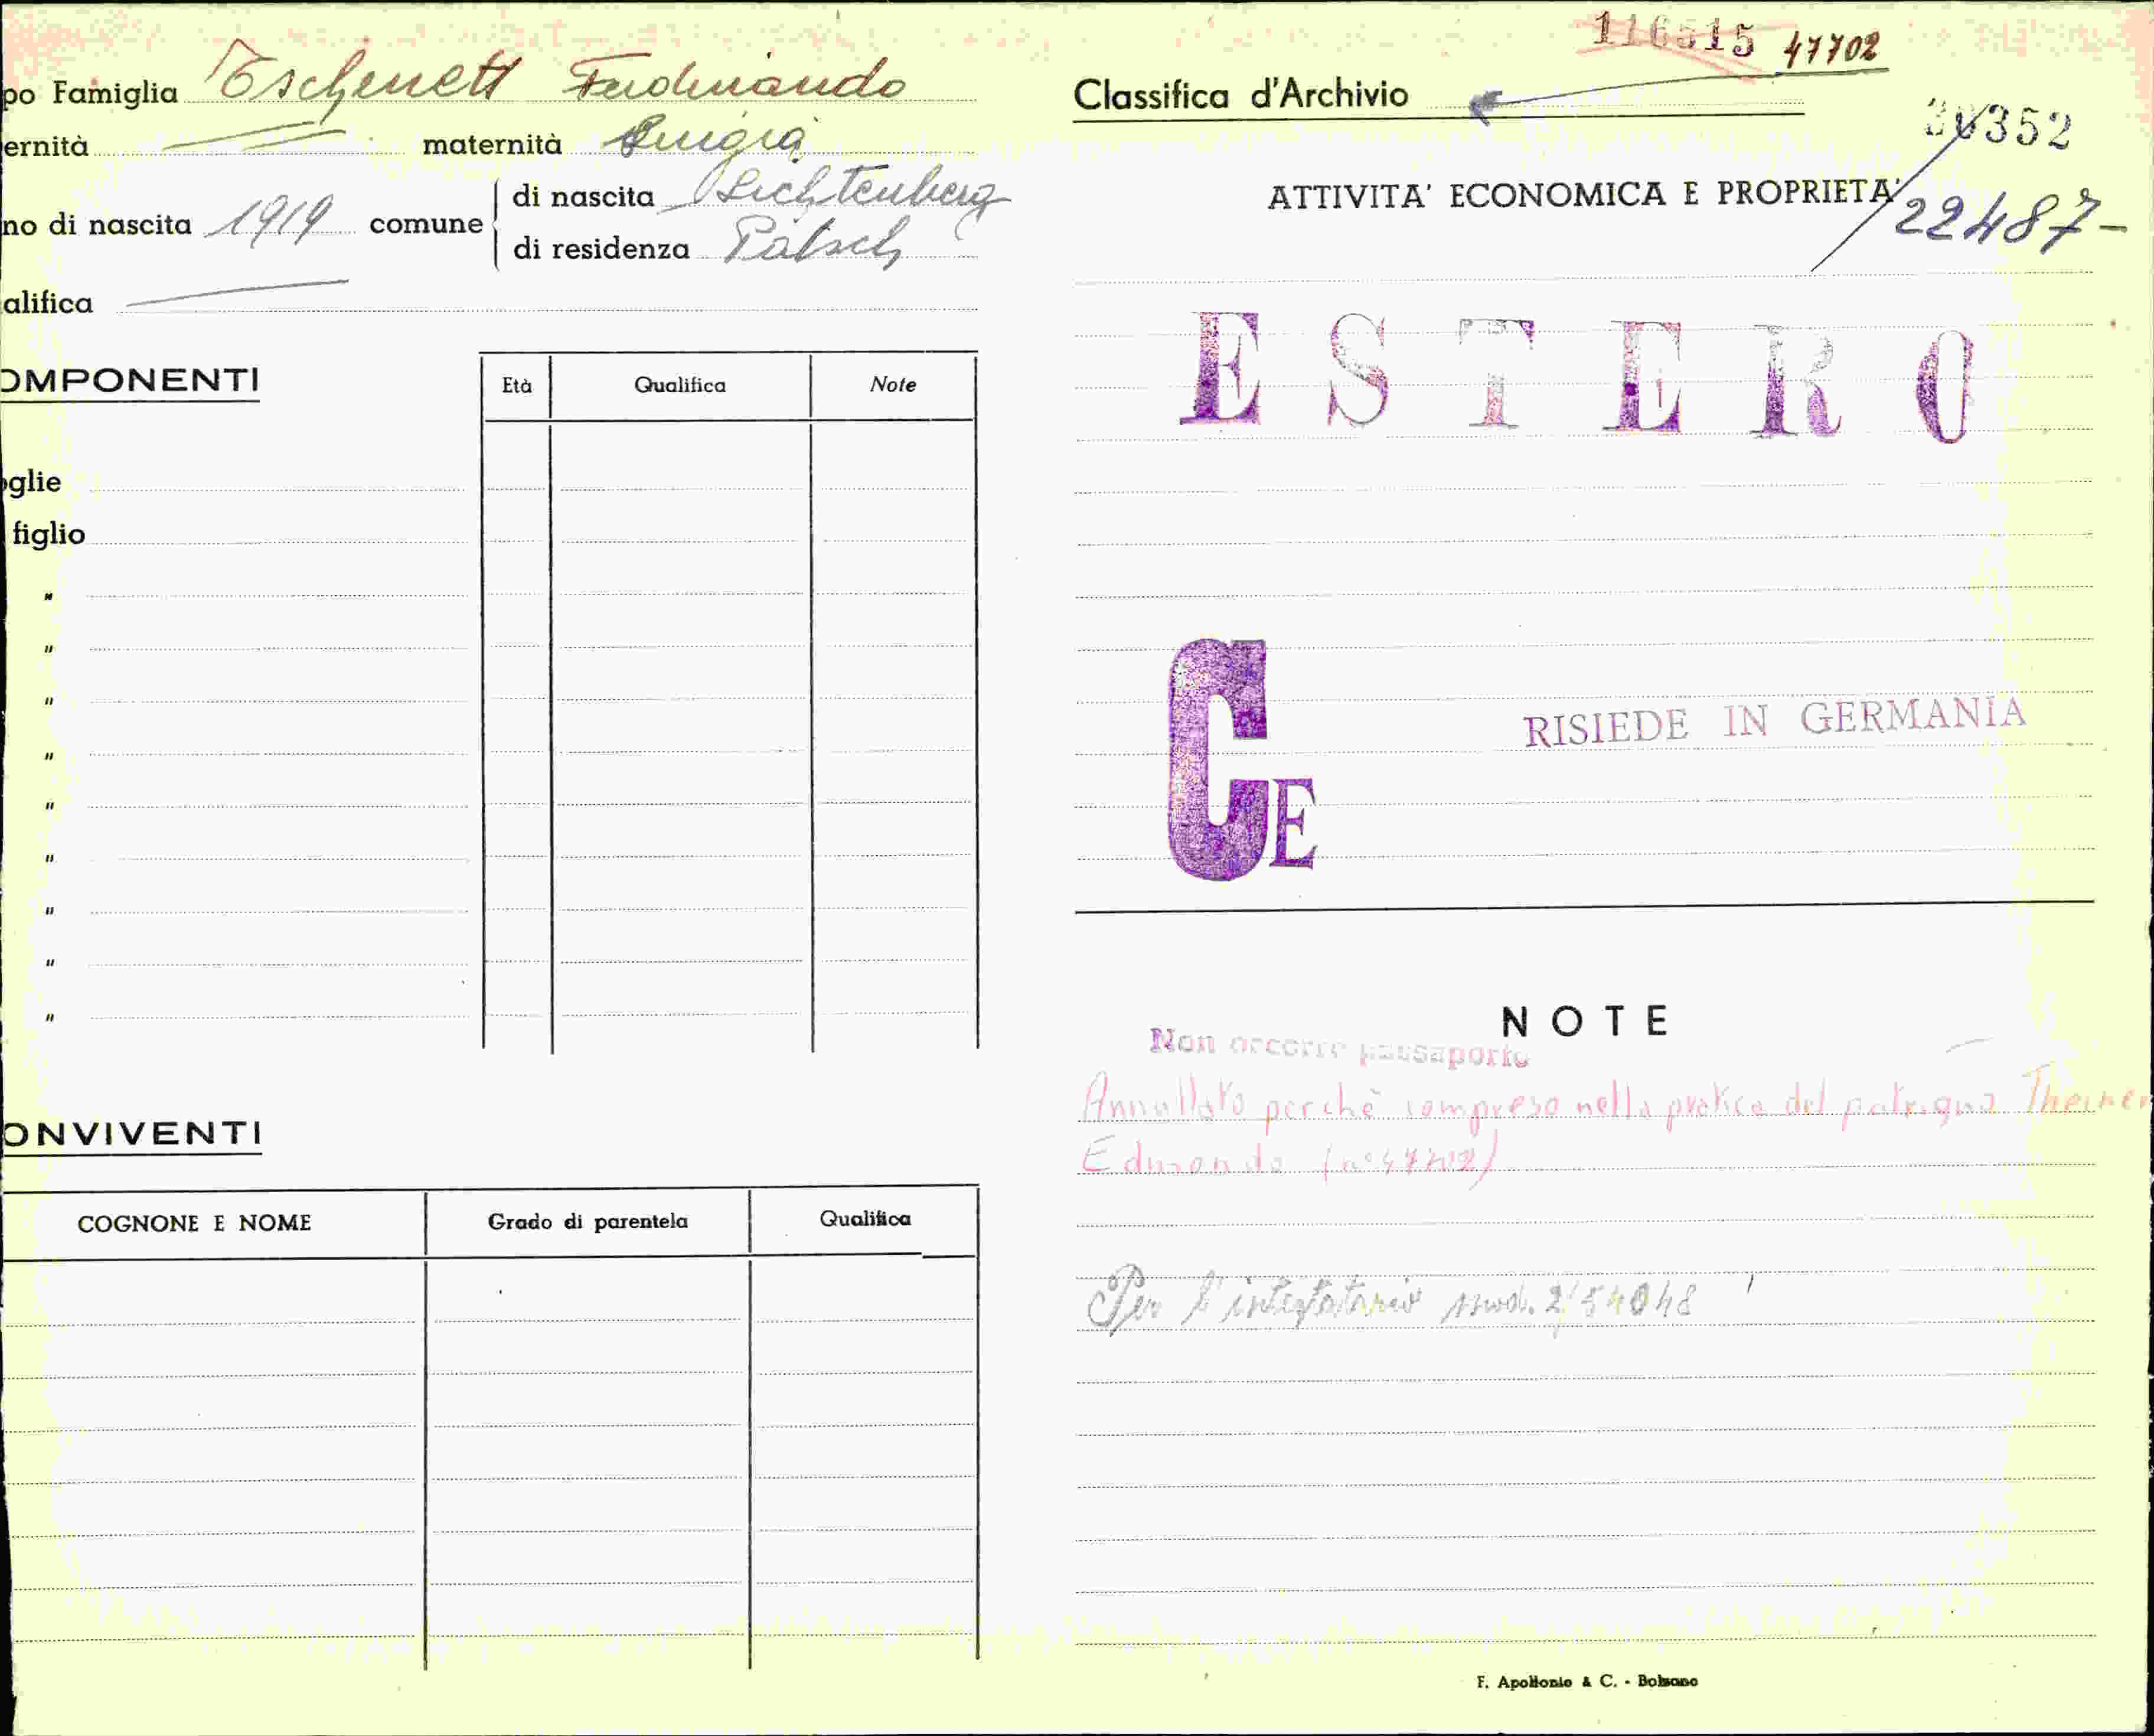 po Famiglia Tschenett Ferdinando
ernità maternità Luigia
no di nascita 1919 comune di nascita Lichtenberg
di residenza Patsch
alifica
OMPONENTI
Età Qualifica Note
oglie
figlio
"
"
"
"
"
"
"
"
"
ONVIVENTI
COGNONE E NOME Grado di parentela Qualifica
116515 47702
Classifica d'Archivio
352
ATTIVITA' ECONOMICA E PROPRIETA'
22487-
ESTERO
CE
RISIEDE IN GERMANIA
NOTE
Non occorre passaporto
Annullato perchè compreso nella pratica del patrigno Theiner
Edmondo (n° 47702)
Per l'intestatario mod. 2/54048
F. Apollonio & C. - Bolzano